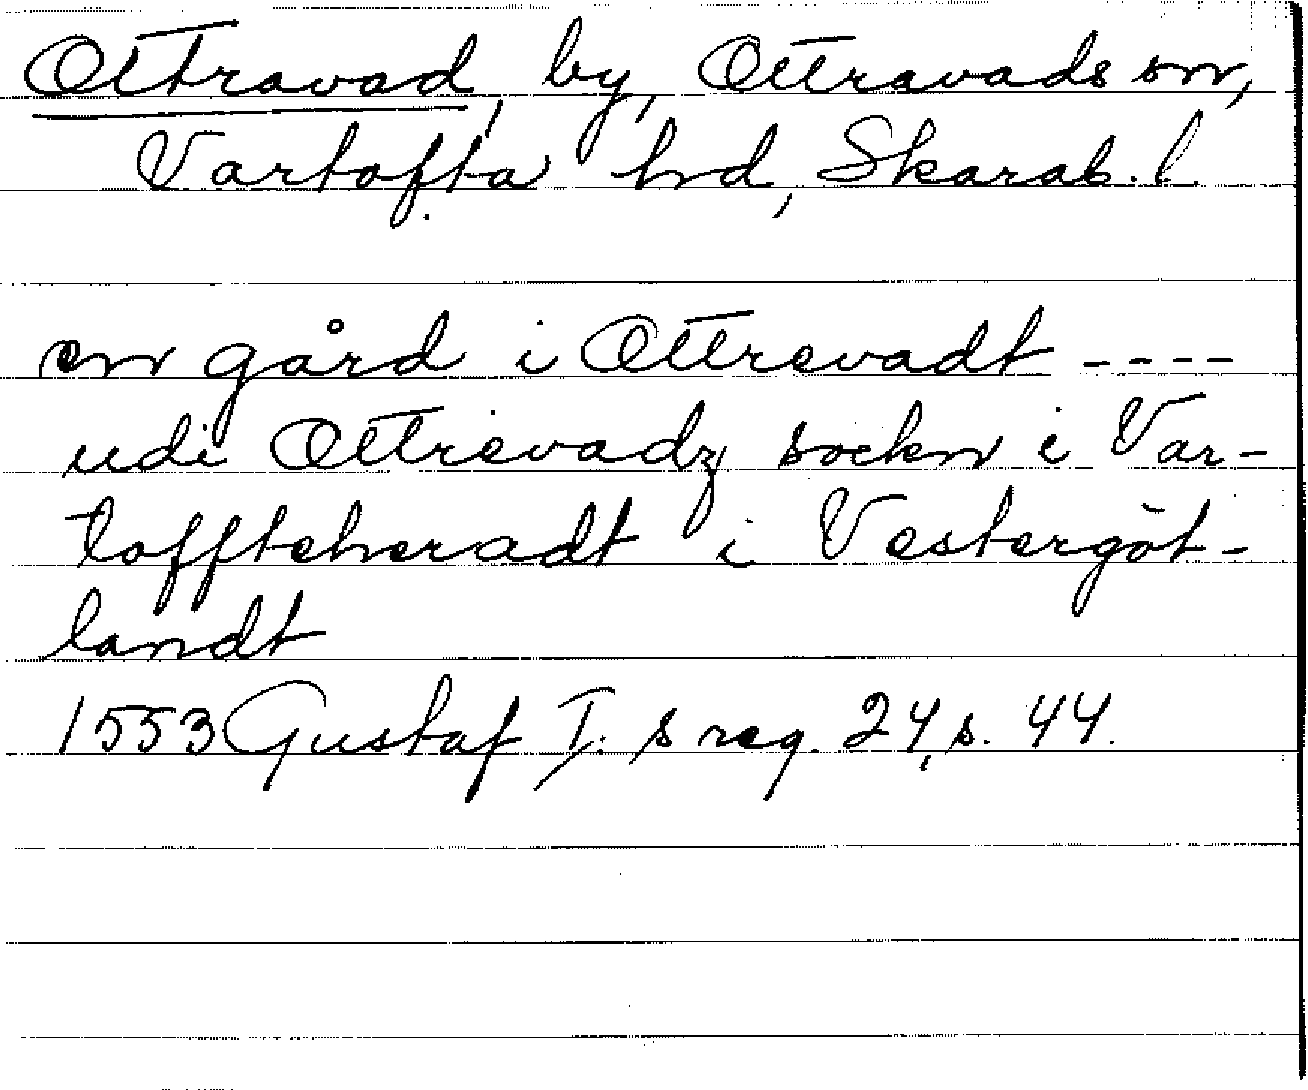 Ottravad, by, Ottravads sn,
Vartofta hd, Skarab. l.
en gård i Ottrevadt ----
udi Ottrevadz sockn i Var-
toffteheradt i Vestergöt-
landt
1553 Gustaf I:s reg. 24, s. 44.